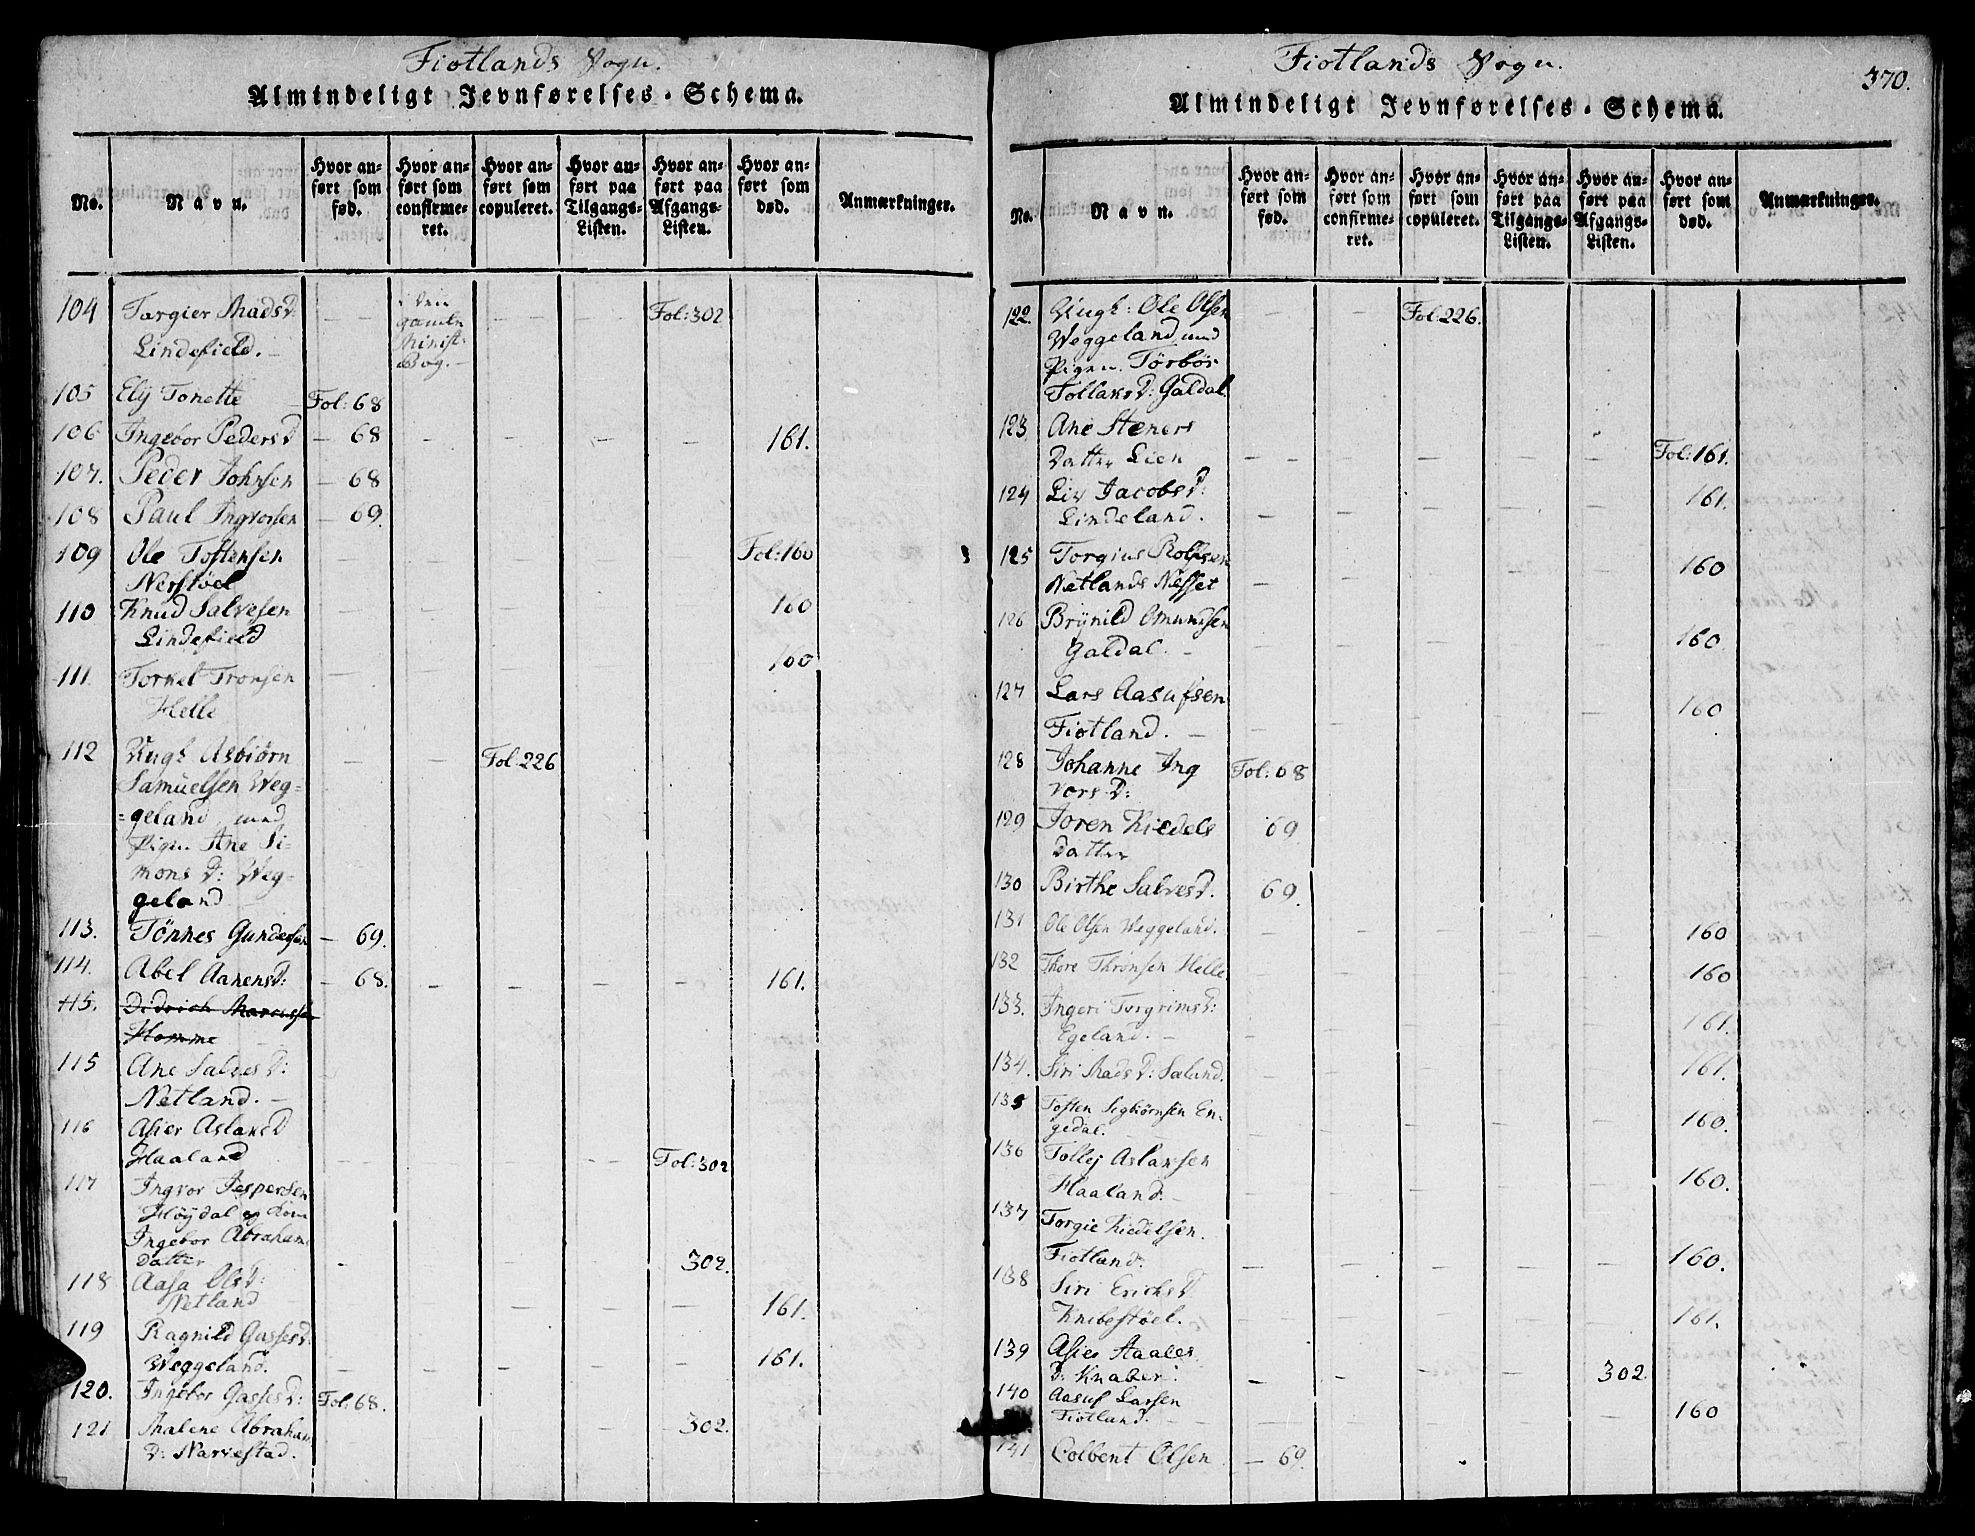 Fiotlands Sogn.
Almindeligt Jevnførelses-Schema.
No.
Navn.
Hvor anført som fød.
Hvor anført som confirmeret.
Hvor anført som copuleret.
Hvor anført paa Tilgangs-Listen.
Hvor anført paa Afgangs-Listen.
Hvor anført som død.
Anmærkninger.
104 Targier MadsD: i den Fol: 302
Lindefield. gamle Minist: Bog.
105 Elij Tonette Fol: 68
106 Ingebor PedersD 68 161.
107. Peder Johnsen 68
108 Paul Ingvorsen 69.
109 Ole Tostensen Fol: 160
Nerstöel
110 Knud Salvesen 160
Lindefield
111. Torkel Tronsen 160
Helle
112 Ungk Asbiørn Fol: 226
Samuelsen Weg=
=geland, med
Pigen Ane Si-
mons D: Weg-
geland
113. Tönnes Gundersen 69.
114. Abel AanensD: 68. 161.
115. Didrich Marcussen
Homme
115 Ane SalvesD:
Netland.
116 Asier AslaksD
Haaland Fol: 302
117 Ingvor Jespersen
Höydal og Kone
Ingebor Abraham
Datter 302.
118 Aasa OlsD:
Netland 161.
119 Ragnild GassesD.
Weggeland. 161.
120. Ingebor GassesD: Fol: 68.
121 Malene Abraham 302.
D: Narvestad.
Fiotlands Sogn.
370.
Almindeligt Jevnførelses-Schema.
No.
Navn.
Hvor anført som fød.
Hvor anført som confirmeret.
Hvor anført som copuleret.
Hvor anført paa Tilgangs-Listen.
Hvor anført paa Afgangs-Listen.
Hvor anført som død.
Anmærkninger.
122. Ungk: Ole Olsen Fol 226.
Weggeland med
Pigen Törbör
TollaksD: Galdal.
123. Ane Steners
Datter Lien Fol: 161.
124 Liv JacobsD: 161.
Lindeland.
125 Torgius Rolfsen 160
Netlands Nesset
126 Brÿnild Omundsen 160.
Galdal.
127 Lars Aasufsen 160
Fiotland.
128 Johanne Ing Fol: 68
vors D:
129 Joren Kiedels 69
Datter
130 Birthe SalvesD. 69.
131 Ole Olsen Weggeland. 160
132 Thore Thronsen Helle 160
133. Ingeri TorgrimsD: 161.
Egeland.
134. Siri MadsD: Saland. 161.
135 Tosten Sigbiörnsen En-
gedal. 160.
136 Tollej Aslaksen
Haaland. 160.
137 Torgie Kiedelsen.
Fiotland. 160.
138 Siri ErichsD
Knibestöel. 161.
139 Asier Staales
D: Knaber. 302
140 Aasuf Larsen
Fiotland. 160
141 Colbent Olsen 69.